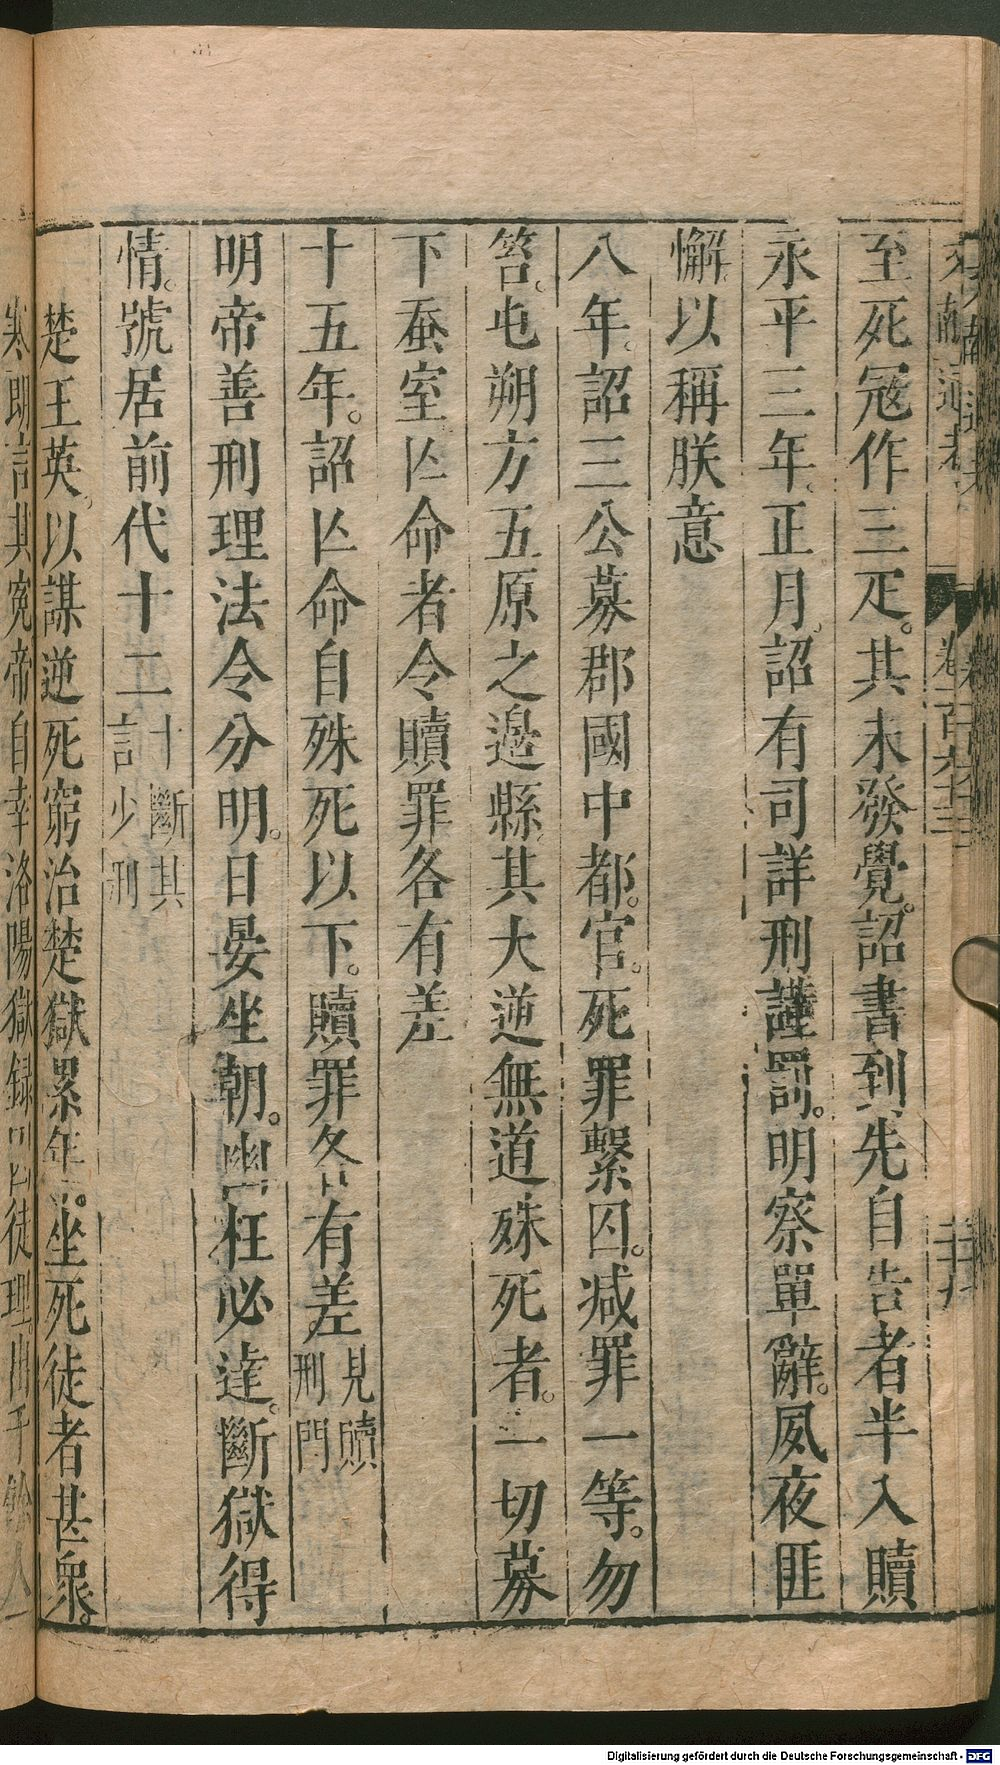 至死冦作三疋。其未發覺。詔書到先自告者半入贖
永平三年。正月。詔有司詳刑謹罰。明察單辭。夙夜匪
懈。以稱朕意
八年。詔三公募郡國中都。官。死罪繫囚。减罪一等。勿
笞。屯朔方五原之邉縣。其大逆無道殊死者。一切募
下蚕室亾命者令贖罪各有差
十五年。詔亾命自殊死以下。贖罪各有差見贖
刑門
明帝善刑理法令分明。日晏坐朝。幽枉必達。斷獄得
情。號居前代十二十斷其
言少刑
楚王英。以謀逆死窮治楚獄累年。坐死徒者甚衆。
寒朗言其寃帝自幸洛陽獄録囚徒理出千餘人
Digitalisierung gefördert durch die Deutsche Forschungsgemeinschaft - DFG